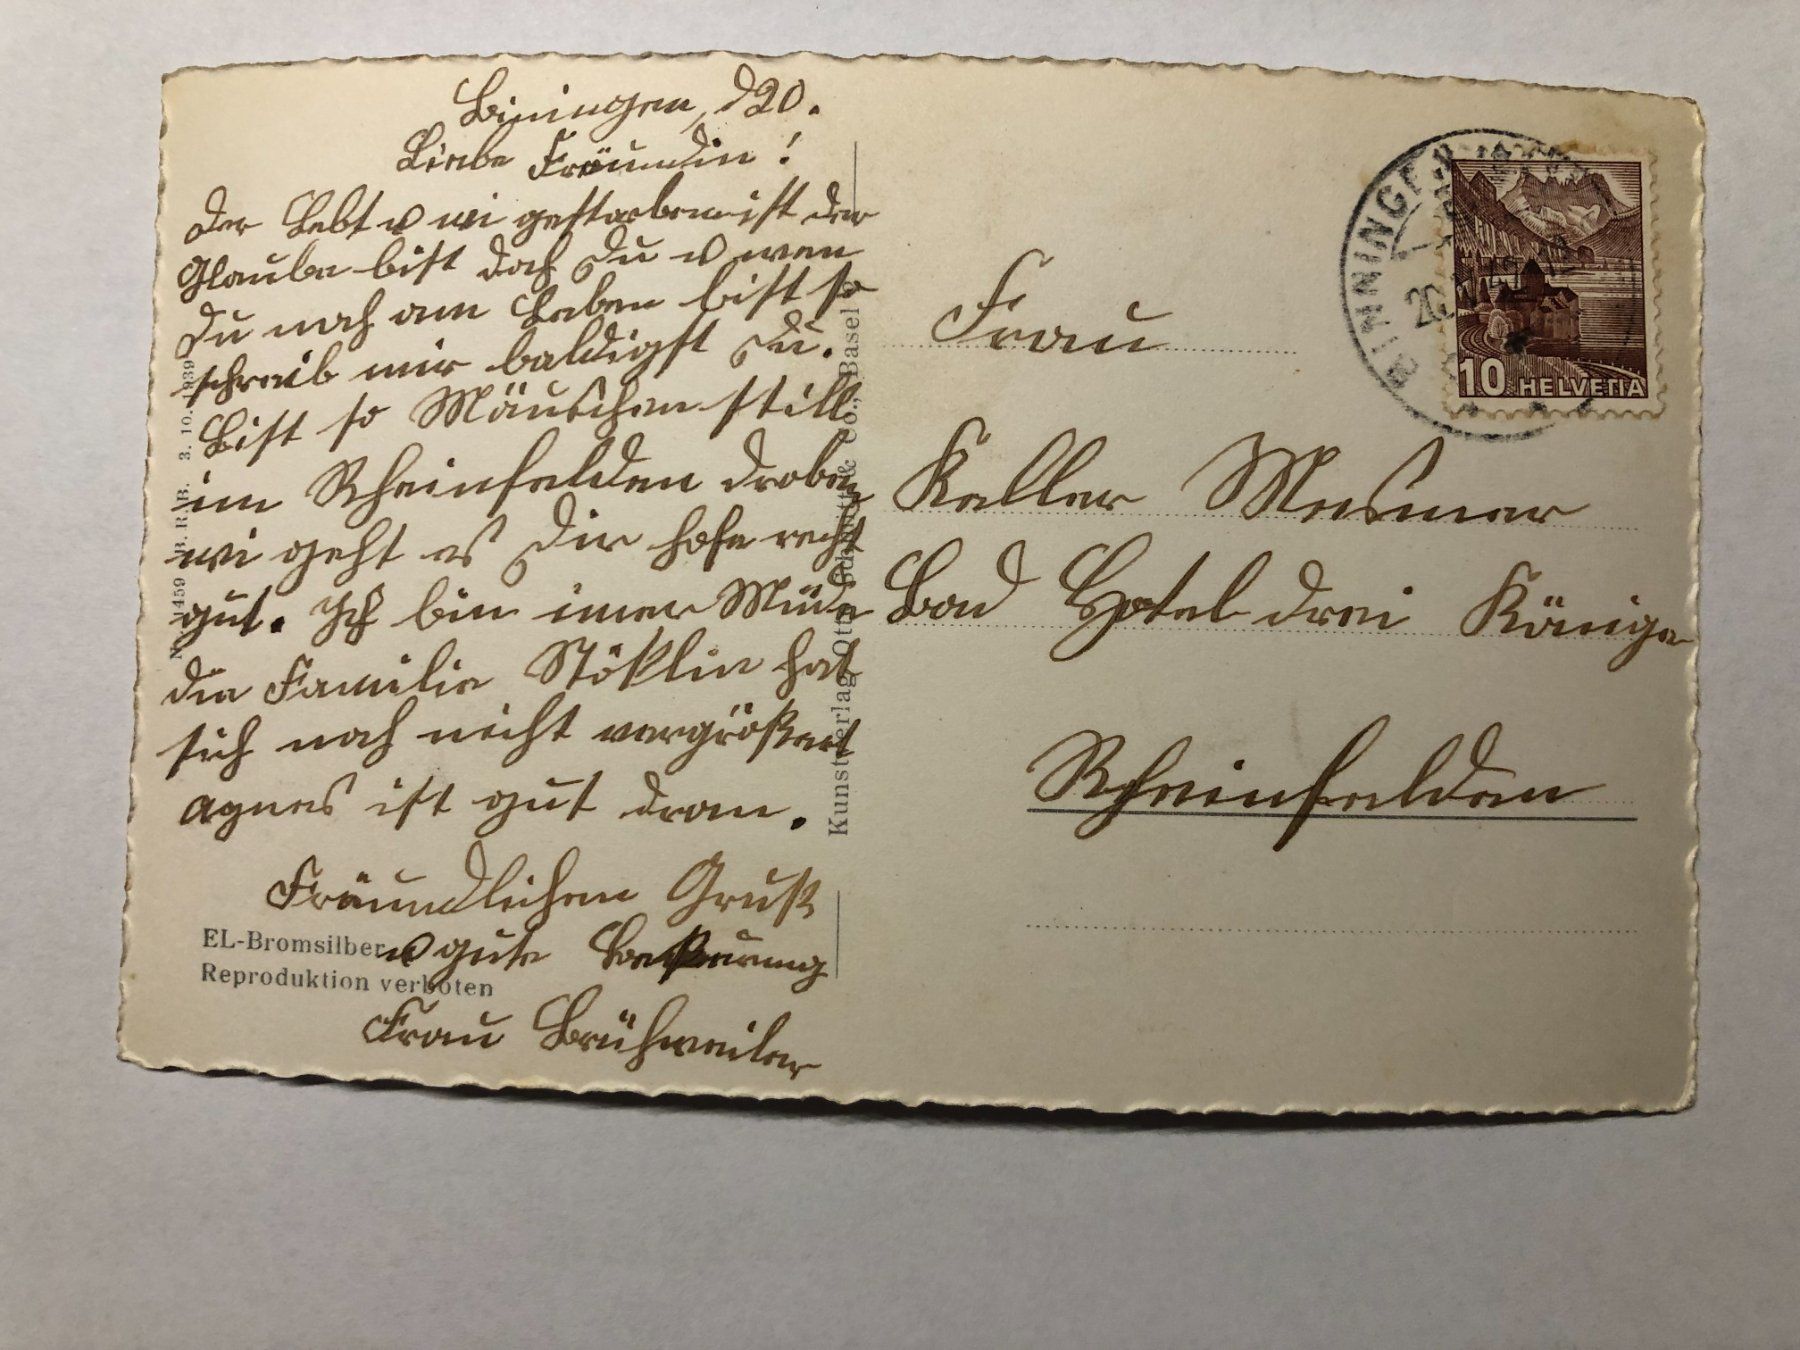 Biningen, d 20.
Liebe Fräundin!
Der Lebt u wi gestorben ist der
Glaube bist doch Du u wen
Du noch am Leben bist so
schreib mir baldigst Du.
Bist so Mäuschen still
im Rheinfelden droben
wi geht es Dir hofe recht
gut. Ich bin imer Müde
die Familie Stöklin hat
sich noch nicht vergrößert
Agnes ist gut dran.
Fräundlichen Gruß
u gute Beßerung
Frau Brühweiler
EL-Bromsilber
Reproduktion verboten
1459 B. R. B. 3. 10. 1939
Kunstverlag Otto & Co., Basel
BINNINGEN
20
10 HELVETIA
Frau
Keller Mesmer
Bad Hotel drei Könige
Rheinfelden